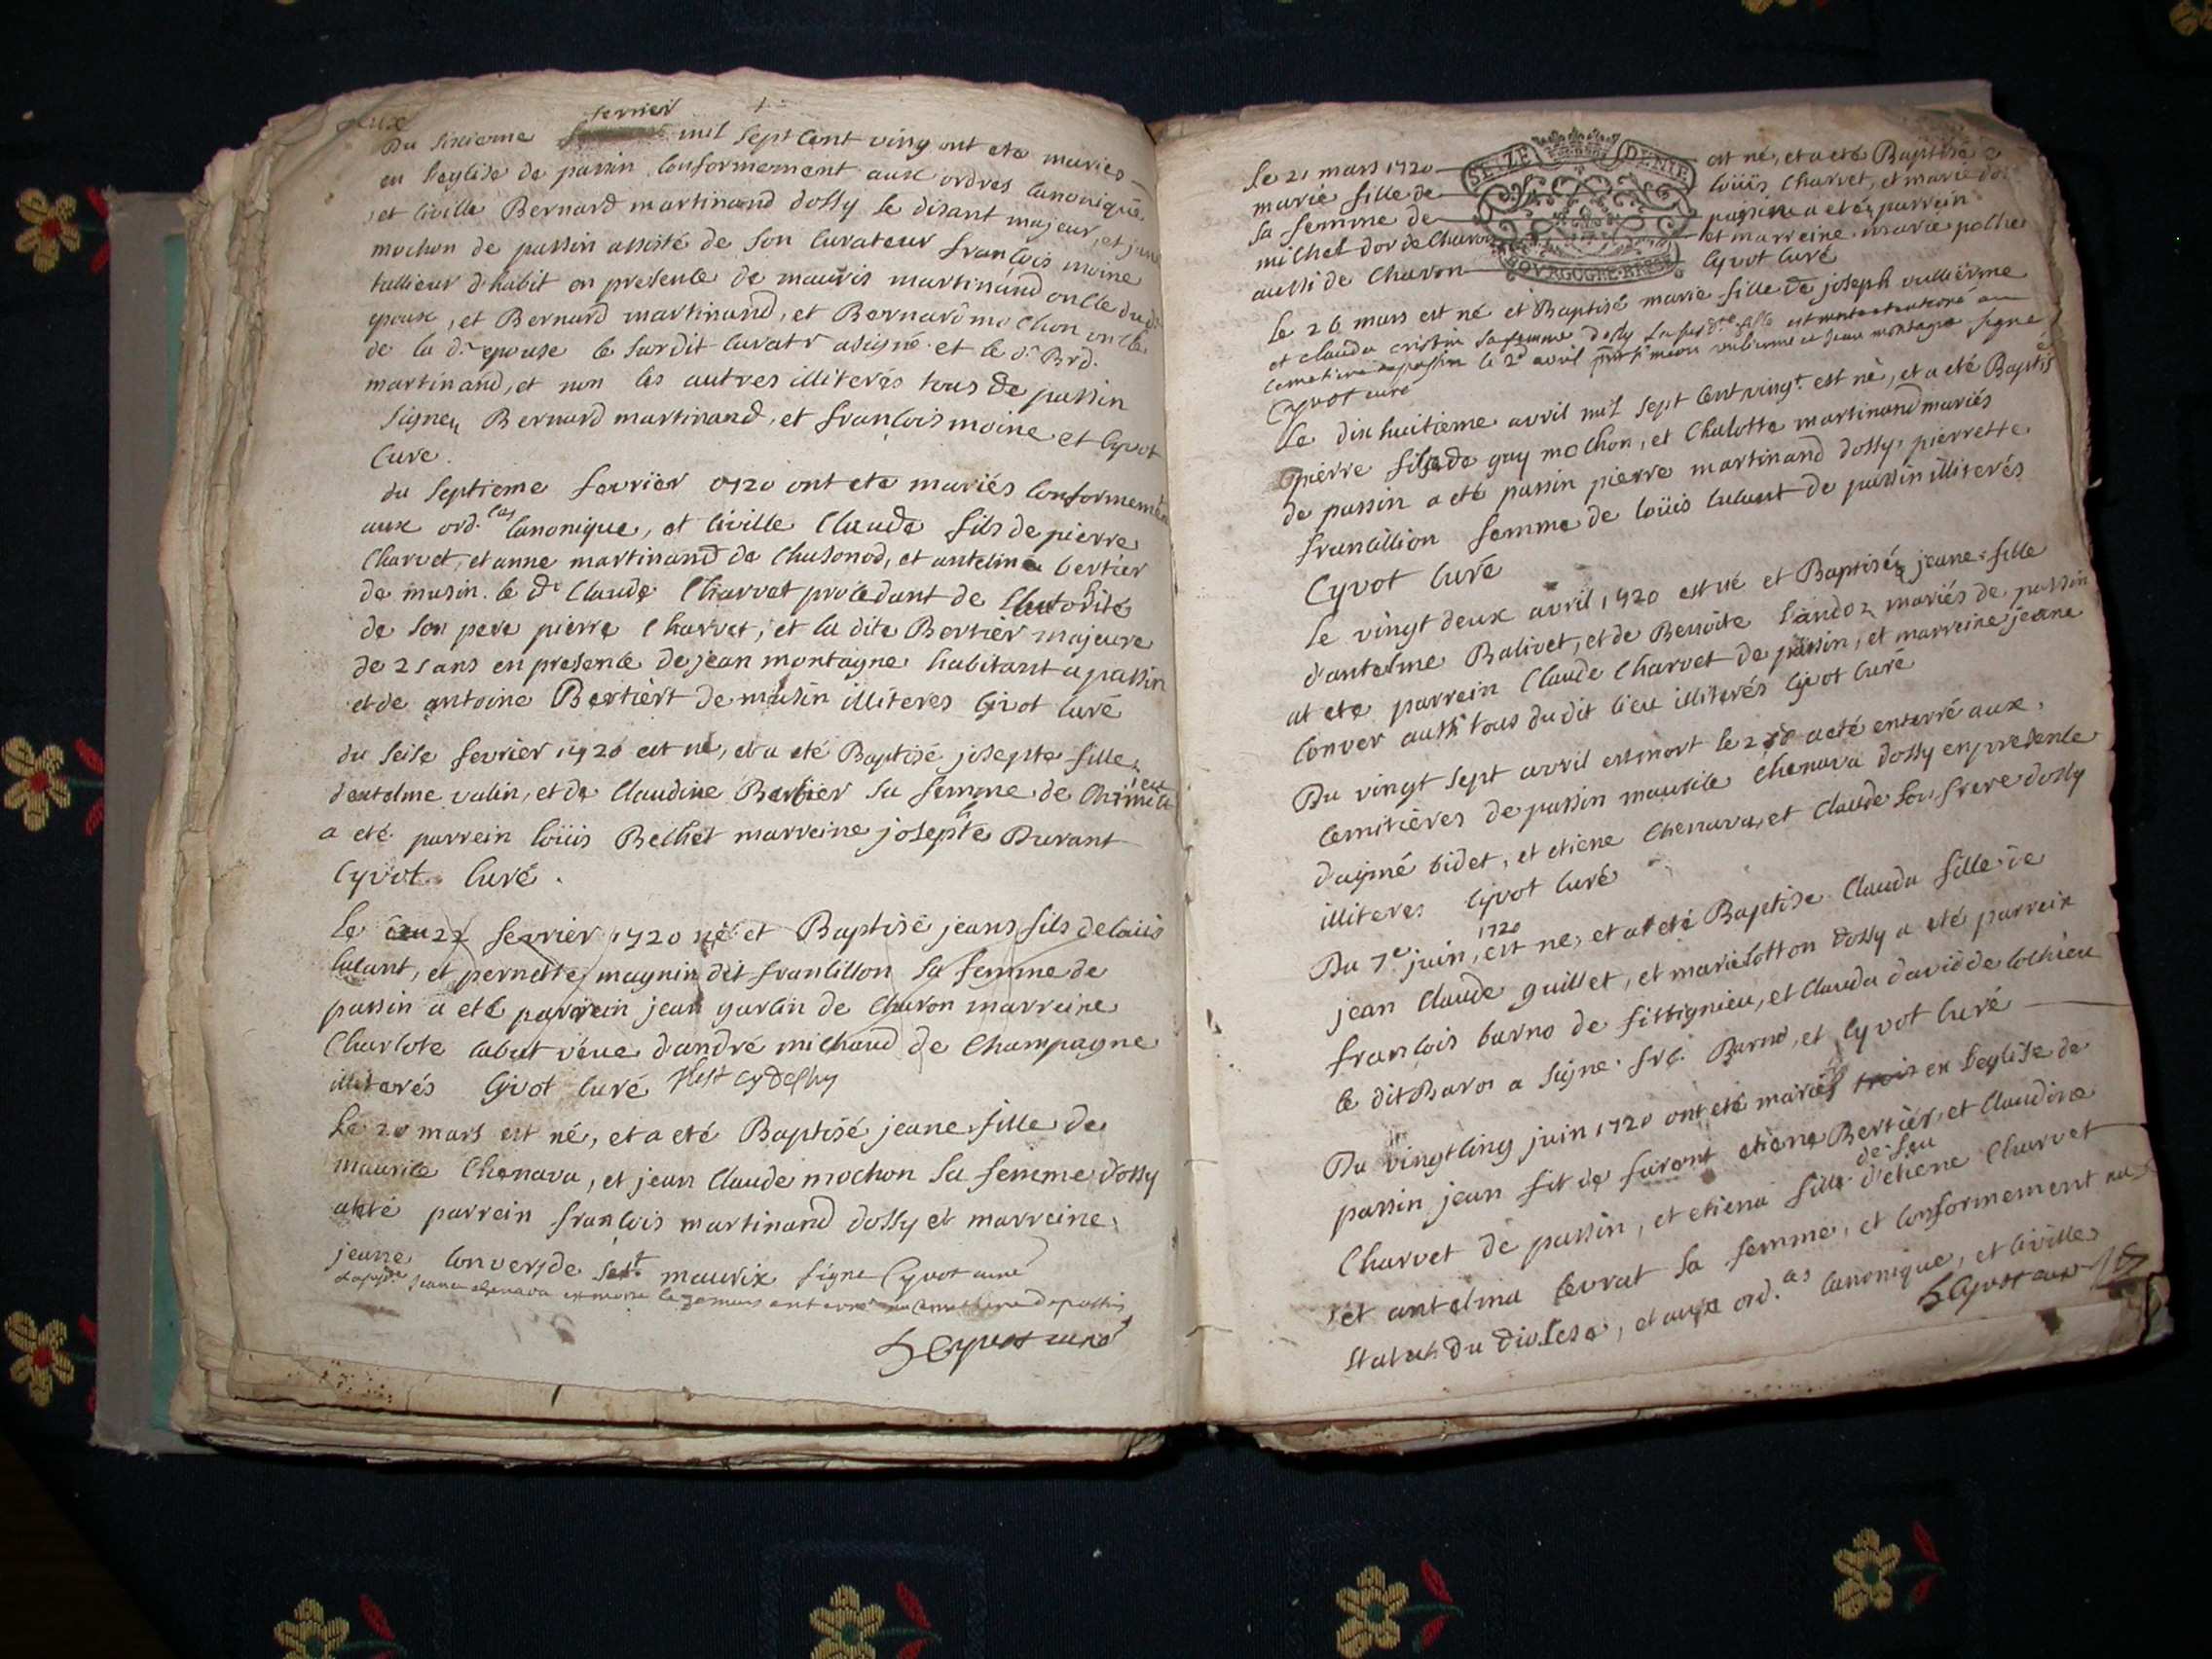 fevrier
Du sixieme mil sept cent ving ont ete maries
en l'eglise de passin conformement aux ordres canonique
et civille Bernard martinand dossy se disant majeur, et
mochon de passin assisté de son curateur françois moine
tallieur d'habit en presence de mauris martinand oncle du
epoux, et Bernard martinand, et Bernard mochon oncle
de la d.e epouse le surdit curatr a signé et le d.t Brd.
martinand, et non les autres illiterés tous de passin
signer Bernard martinand, et françois moine et Cyvot
Curé.
du septieme fevrier 1720 ont ete mariés conformement
aux ord.ces canonique, et civille Claude fils de pierre
Charvet, et anne martinand de Chasonod, et antelma bertier
de musin. le d.t Claude Charvet procedant de l'autorité
de son pere pierre Charvet, et la dite Bertier majeure
de 25 ans en presence de jean montagne habitant a passin
et de antoine Bertiert de musin illiteres Cyvot Curé
du seise fevrier 1720 est né, et a eté Baptisé josepte fille
d'antelme valin, et de Claudine Berbier sa femme de
a eté parrein loüis Belliet marreine josephte Durant
Cyvot Curé.
Le 22 fevrier 1720 né et Baptisé jean fils de loüis
lucant, et pernette magnin dit francillion sa femme de
passin a eté parrein jean garbin de Charon marreine
Charlote cabut veue d'andré michaud de Champagne
illiterés Cyvot Curé
Le 20 mars est né, et a eté Baptisé jeane fille de
maurice Chenava, et jean Claude mochon sa femme dossy
a eté parrein françois martinand dossy et marreine
jeanne convers de st maurix signe Cyvot curé
jeanne chenava est morte le enterré au cimetiere de passin
Cyvot curé
SEIZE DENIE
BOURGOGNE·BRESSE
le 21 mars 1720 est né, et a eté Baptisé
marie fille de loüis Charvet, et marie
sa femme de passin a eté parrein
michel dor de Charon et marreine marie
aussi de Charon Cyvot Curé
le 26 mars est né et Baptisé marie fille de joseph vullierme
et clauda cristin sa femme dossy la fille est au
cemetiere de passin le 2e avril jean montagne signe
Cyvot curé
Le dix huitieme avril mil sept cent vingt est né, et a eté Baptisé
pierre fils de guy mochon, et Chalotte martinand mariés
de passin a eté passin pierre martinand dossy, pierrette
francillion femme de loüis lucant de passin illiterés
Cyvot Curé
le vingt deux avril 1720 est né et Baptisée jeane fille
d'antelme Balivet, et de Benoite Sandoz mariés de passin
at ete parrein Claude Charvet de passin, et marreine jeane
Conver aussi tous du dit lieu illiterés Cyvot Curé
Du vingt sept avril est mort le 28 a eté enterré aux
cemitières de passin maurice Chenava dossy en presence
d'aymé bidet, et etiene Chenava, et Claude son frere dossy
illiteres Cyvot Curé
1720
Du 7e juin, est né, et at eté Baptisé Clauda fille de
jean Claude guillet, et marie cotton dossy a eté parrein
françois barno de fittignieu, et Clauda david de lochieu
le dit Baron a signé. frç. Barno, et Cyvot Curé
Du vingtcinq juin 1720 ont eté mariés en l'eglise de
passin jean fit de furont etiene Bertier, et Claudine
Charvet de passin, et etiena fille de feu d'etiene Charvet
et antelma levrat sa femme, et conformement au
statut du diocese, et aux ord.ces canonique, et civille
Cyvot curé